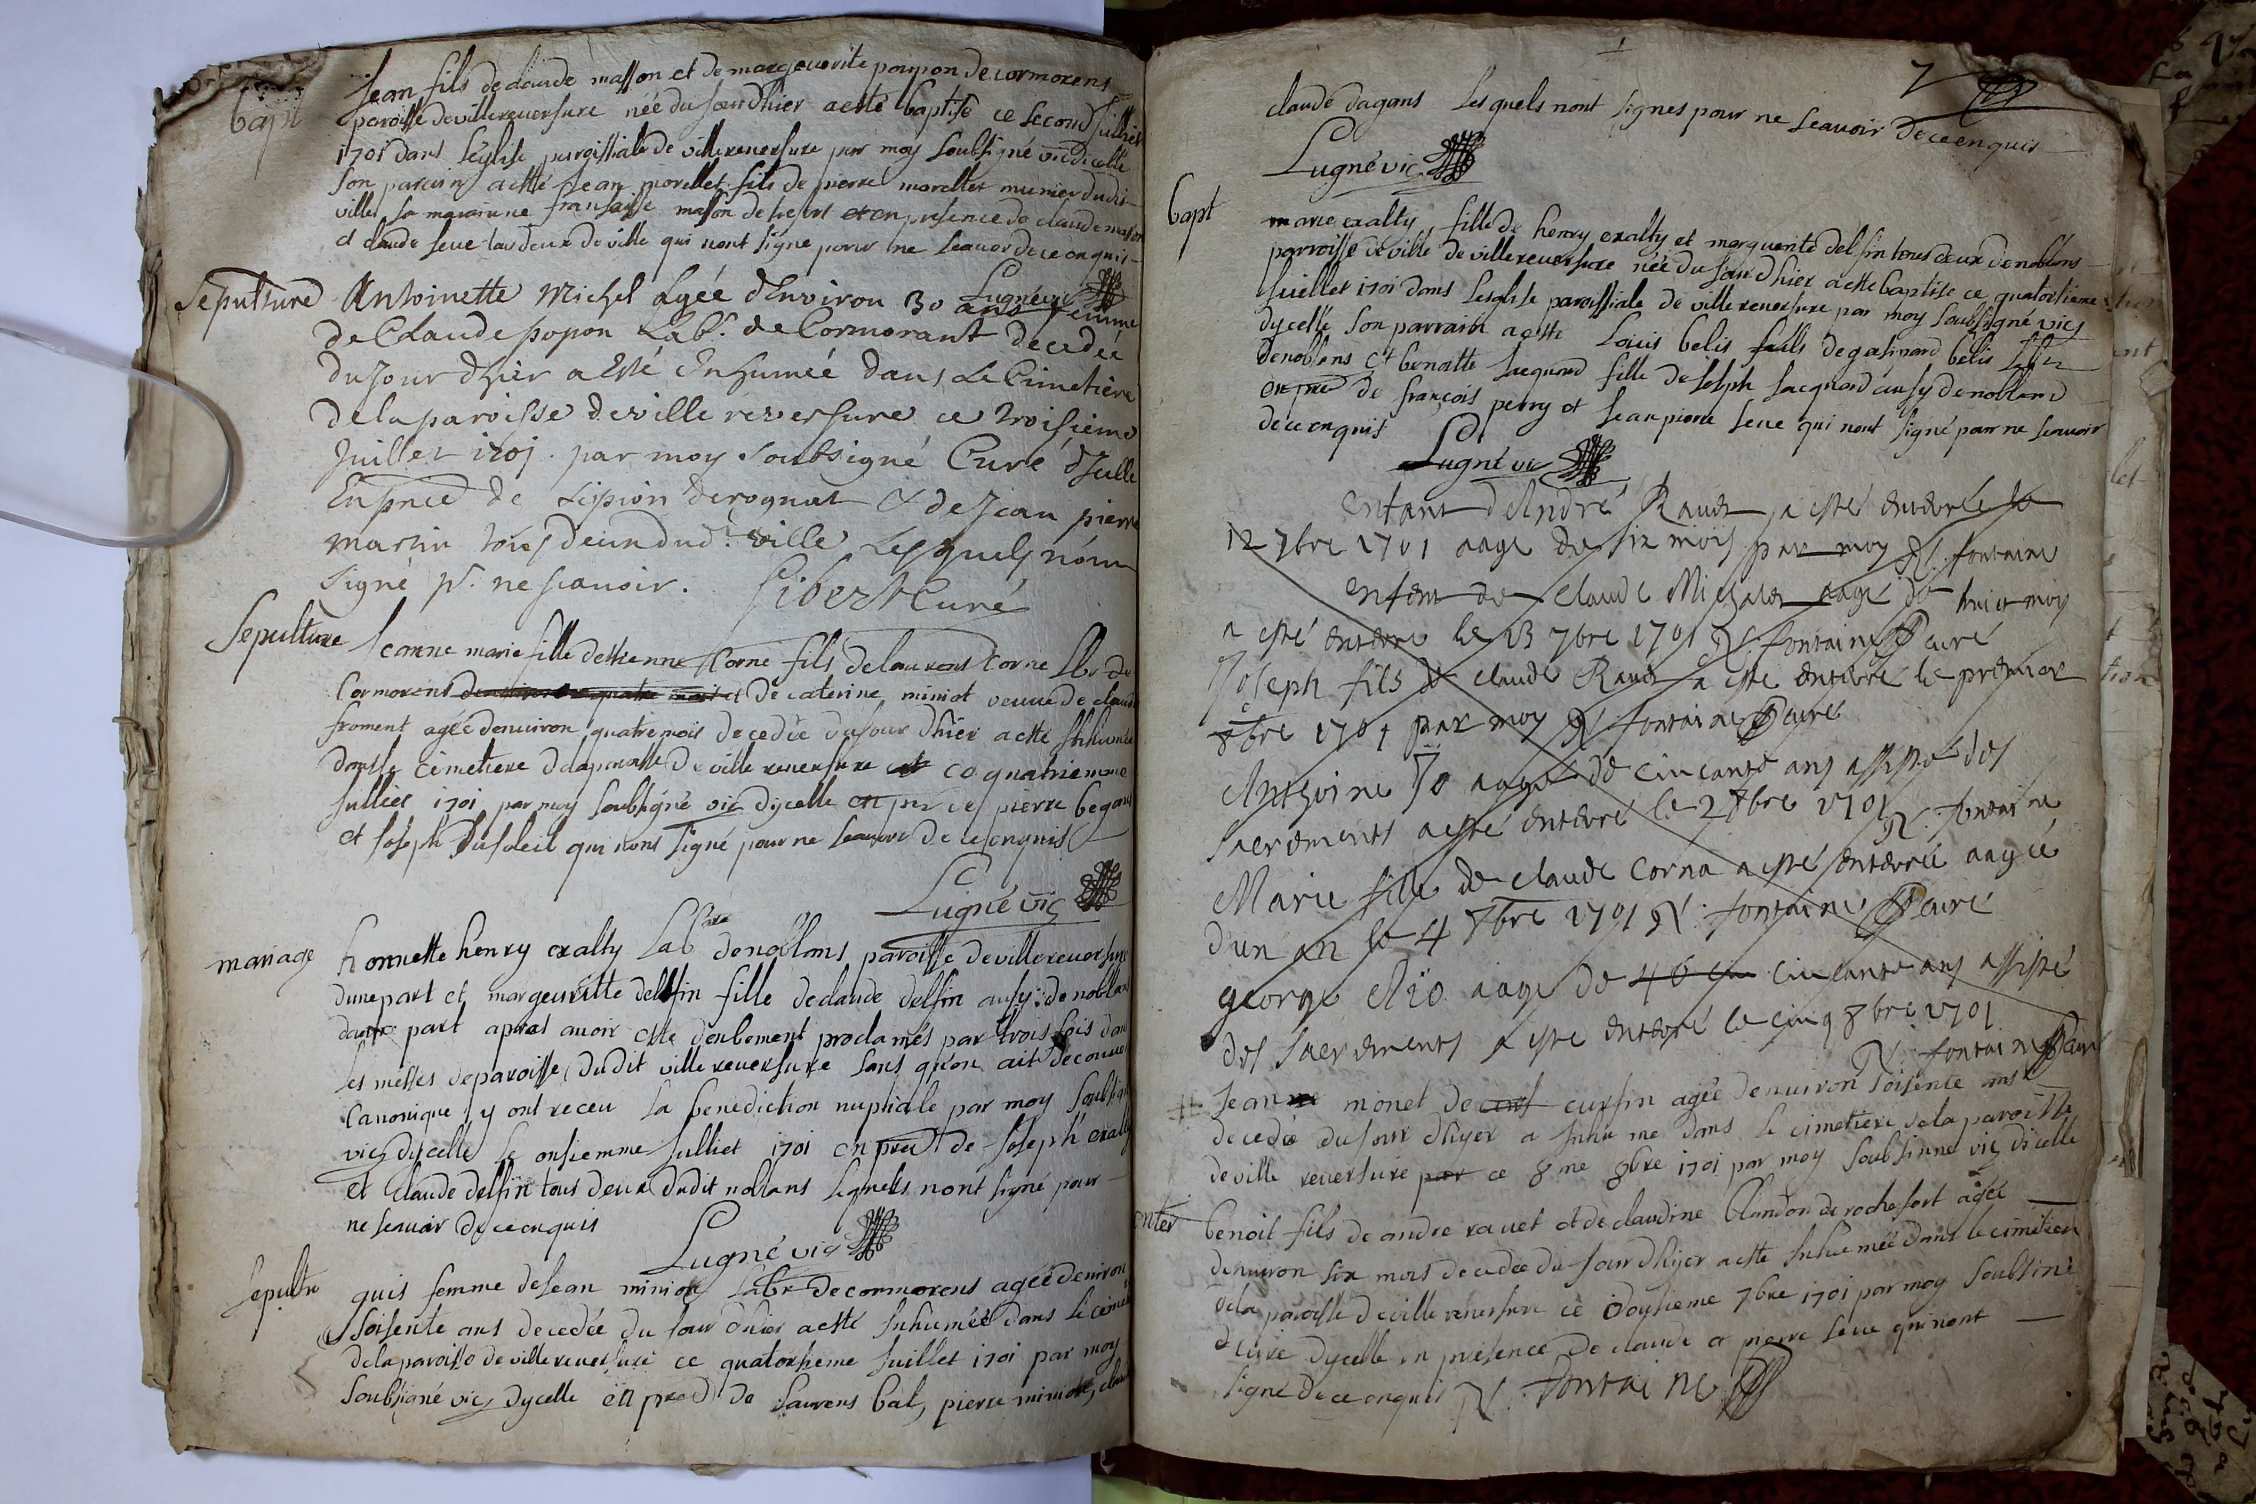 bapt
Jean fils de claude masson et de margeuerite poupon de cormorens
paroisse de villereuersure née du jour dhier a esté baptisé ce second juilliet
1701 dans l'église paroissiale de villereuersure par moy soubsigné vic dicelle
son parain a esté Jean morellet fils de pierre morellet munier dudit
ville sa maraine fransoise masson de et en presence de claude masson
et claude seue tous deux de ville qui nont signe pour ne seauoir de ce enquis
Lugné vic
Sepulture Antoinette Michel Agée d'Environ 30 ans femme
de Claude popon Lab.r de Cormorant decedée
du Jour d'hier a Esté Enhumée dans le Cimetiere
de la paroisse de ville reversure ce troisieme
Juillet 1701. par moy soubsigné Curé d'Icelle
En pñce de sipion derognat & de Jean pierre
martin tous deux dud.t ville Lesquels n'ont
signé p.r ne scauoir. Sibert Curé
Sepulture Jeanne marie fille detienne Corne fils de laurens Corne Lbr de
Cormorens et de caterine miniot veuue de claude
froment agée denuiron quatre mois decedée du jour dhier a esté Inhumée
dans le cimetiere de la paroisse de ville reuersure ce quatriemme
Julliet 1701 par moy soubsigné vic dycelle en pnce pierre begons
et Joseph Dusoleil qui nont signé pour ne seauoir de ce enquis
Lugné vic
mariage honneste henry exalty Labr de noblans paroisse de villereuersure
dune part et margeuritte delfin fille de claude delfin ausy de noblans
dautre part apres auoir esté deubement proclamés par trois fois dans
les messes de paroisse dudit villereuersure sans qu'on ait decouuert
Canonique y ont receu la benediction nuptiale par moy soubsigné
vic dycelle le onsiemme Julliet 1701 en pnce de Joseph exalty
et claude delfin tous deux dudit noblans lequels nont signé pour
ne seauoir de ce enquis
Lugné vic
Sepultre quis femme de Jean miniot Labr de cormorens agée denviron
soisente ans decedée du jour dhier a esté Inhumée dans le cimetiere
de la paroisse de villereuersure ce quatorsieme Juillet 1701 par moy
soubsigné vic dycelle en pnce de Laurens bal, pierre miniot, claude
7
claude dagans lesquels nont signes pour ne seauoir de ce enquis
Lugné vic
bapt
marie exalty, fille de henry exalty et marguerite delfin tous deux de noblens
parroisse de ville de villereuersure née du jour dhier a esté baptise ce quatorsieme
Juillet 1701 dans l'esglise paroissiale de villereuersure par moy soubsigné vic
dycelle son parrain a esté Louis belis fills de gasinard belis Lbr
de noblens et benoitte Jaquard fille de Joseph Jacquard ausy de noblans
en pnce de françois perry et Jean pierre seue qui nont signé pour ne seauoir
de ce enquis
Lugné vic
enfant dAndré Rauet a esté enterré le
12 7bre 1701 aagé de six mois par moy N. fontaine
enfant de claude Michalet aagé de huict mois
a esté enterré le 13 7bre 1701 N. fontaine curé
Joseph fils de claude Rauet a esté enterré le premier
8bre 1701 par moy N. fontaine curé
Anthoine Jo aagé de cincante ans assisté des
sacrements a esté enterré le 2 8bre 1701 N. fontaine
Marie fille de claude Corna a esté enterrée aagée
d'un an le 4 8bre 1701 N. fontaine curé
george aagé de cincante ans assisté
des sacrements a esté enterré le cinq 8bre 1701
N. fontaine curé
Jeanne monet de curfin agée denuiron soisente ans
decedée du jour dhyer a inhumé dans le cimetiere de la paroisse
de ville reuersure par ce 8me 8bre 1701 par moy soubsinné vic dicelle
enter benoit fils de andre rauet et de claudine blandon de rochefort agée
denuiron six mois decedée du jour dhyer a esté Inhumée dans le cimetiere
de la paroisse de ville reuersure ce doussieme 7bre 1701 par moy soubsiné
curé dycelle en presence de claude et pierre seue qui nont
signé de ce enquis N. fontaine